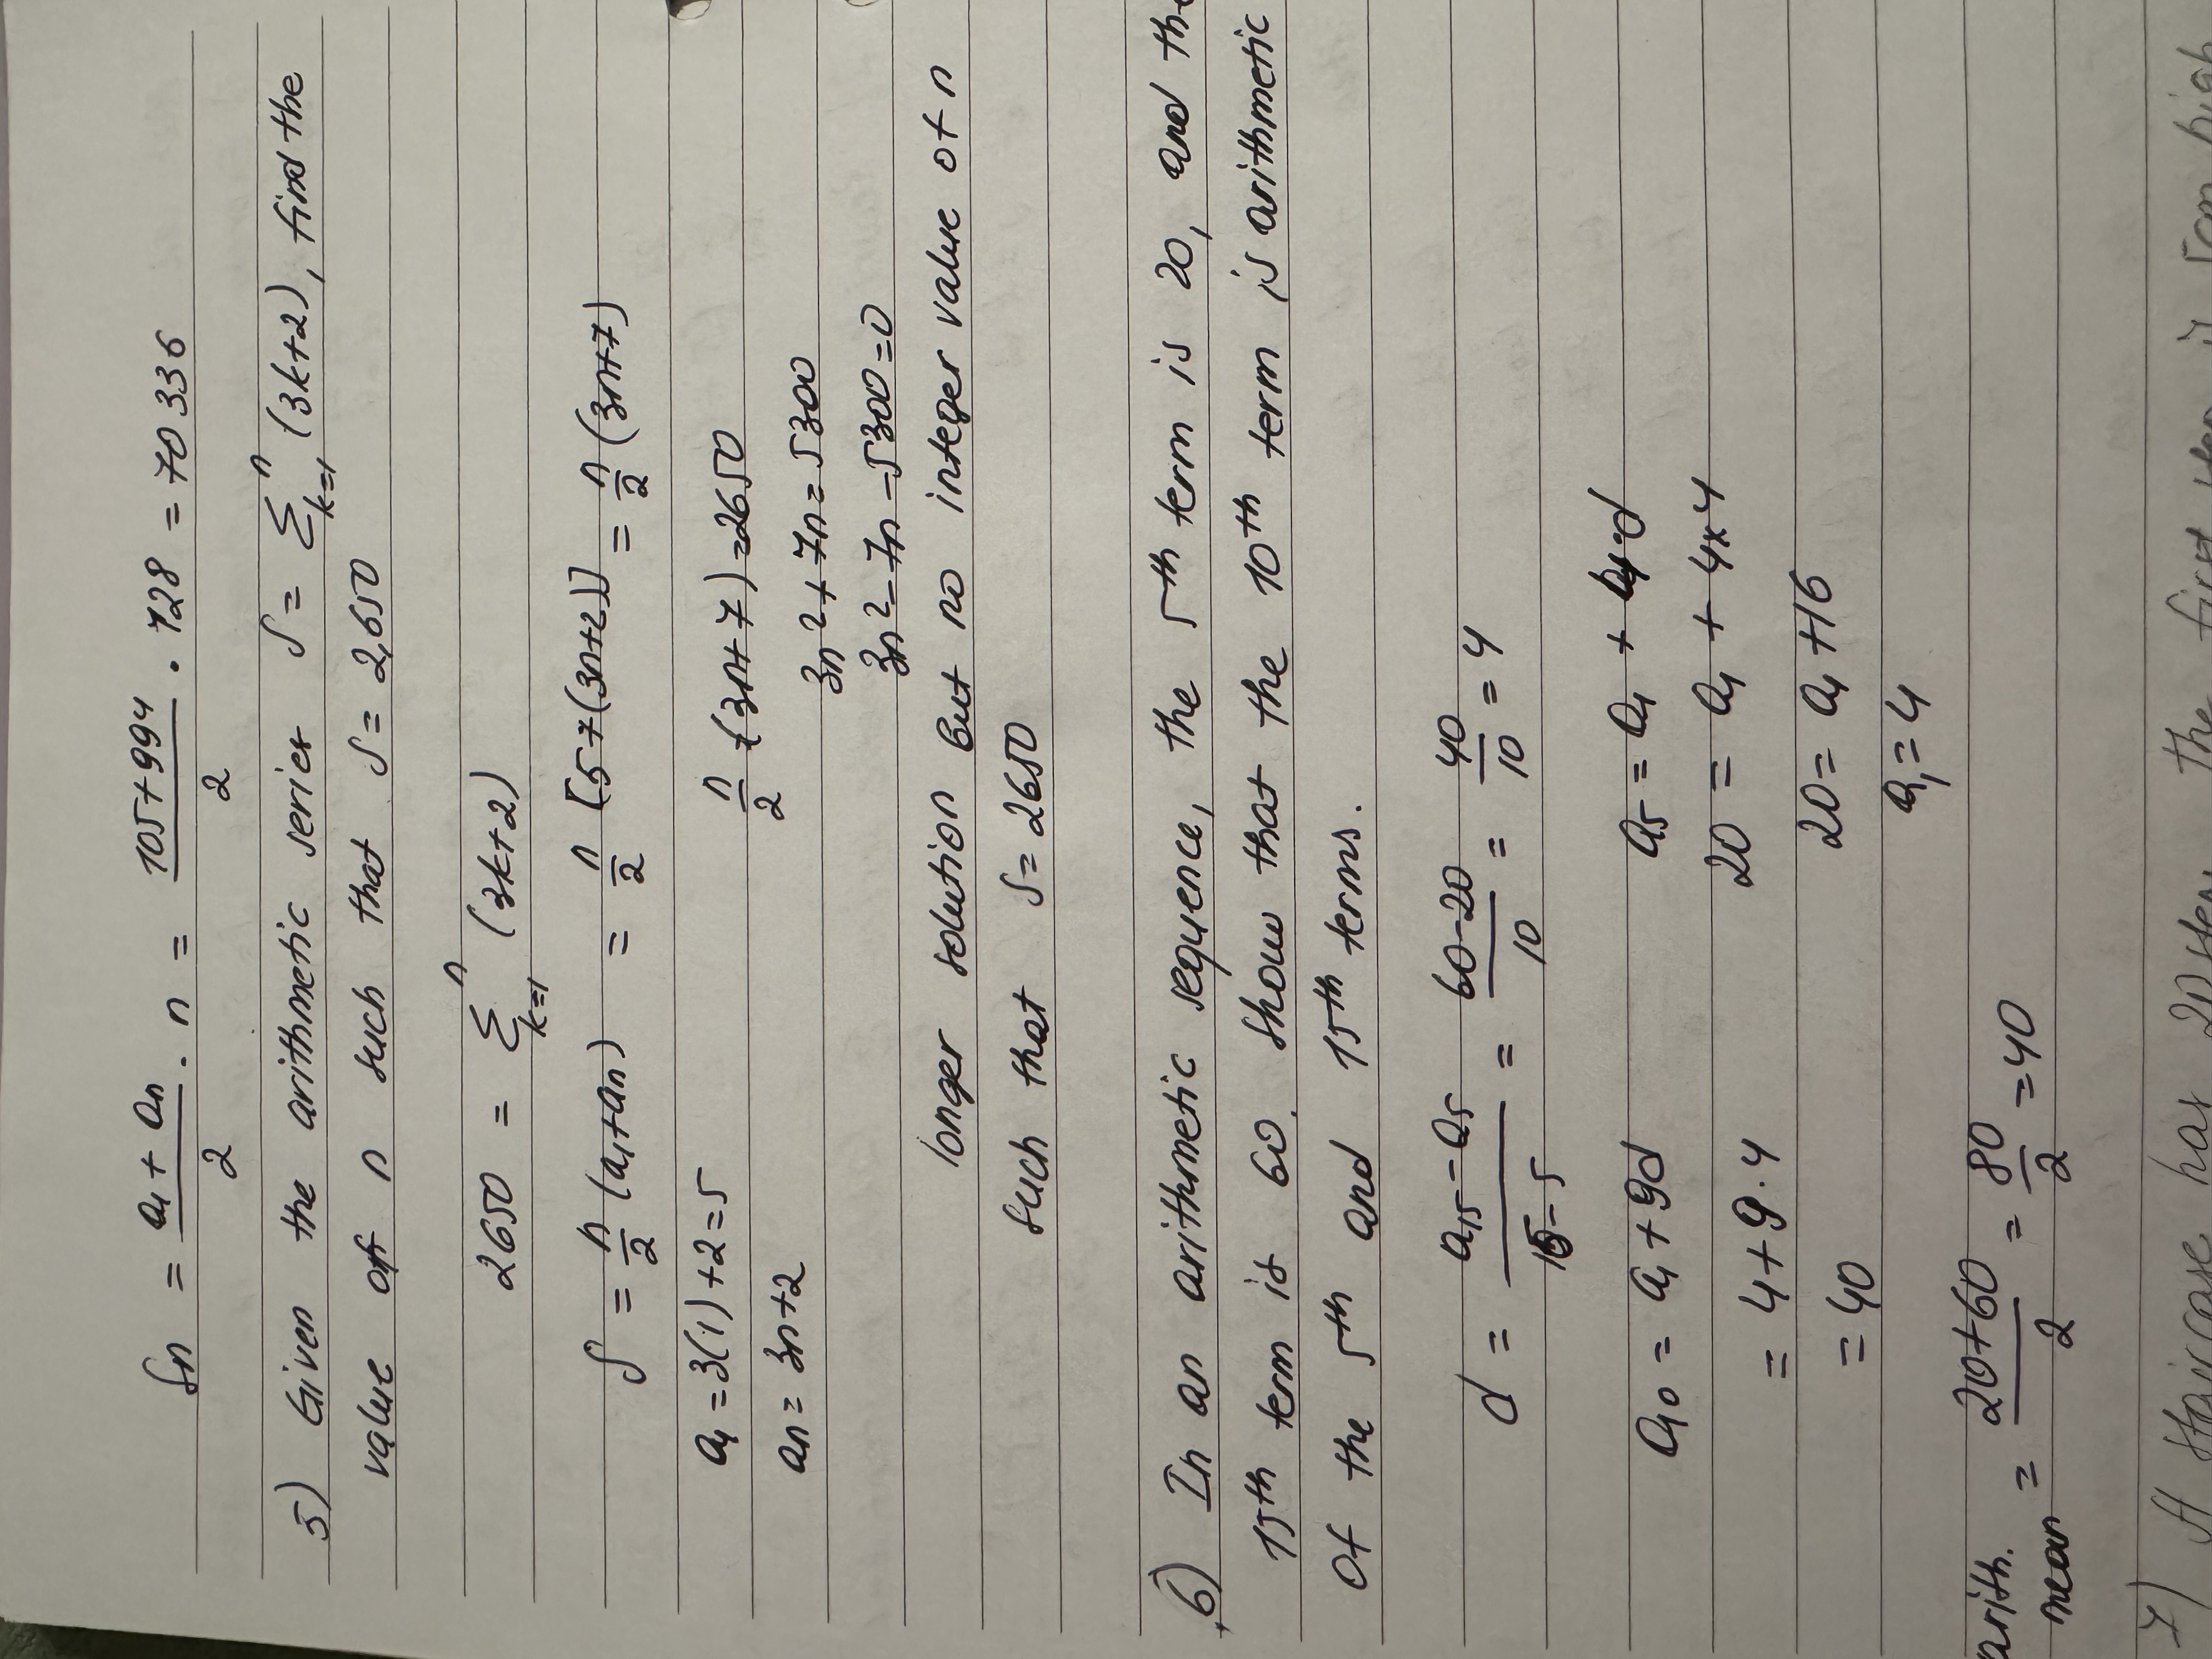 Sn = (a1 + an)/2 · n = (105+994)/2 · 128 = 70 336
5) Given the arithmetic series S = Σ_{k=1}^{n} (3k+2), find the
value of n such that S = 2,650
2650 = Σ_{k=1}^{n} (3k+2)
S = n/2 (a1+an) = n/2 [5+(3n+2)] = n/2 (3n+7)
a1 = 3(1)+2=5
n/2 (3n+7)=2650
an = 3n+2
3n²+7n=5300
3n²-7n-5300=0
longer solution but no integer value of n
such that S=2650
6) In an arithmetic sequence, the 5th term is 20, and the
15th term is 60. Show that the 10th term is arithmetic
of the 5th and 15th terms.
d = (a15-a5)/(15-5) = (60-20)/10 = 40/10 = 4
a10 = a1+9d
a5 = a1 + 4·d
20 = a1 + 4x4
= 4+9·4
20= a1+16
= 40
a1=4
arith. mean = (20+60)/2 = 80/2 =40
7) A staircase has 20 the first step is 5cm high